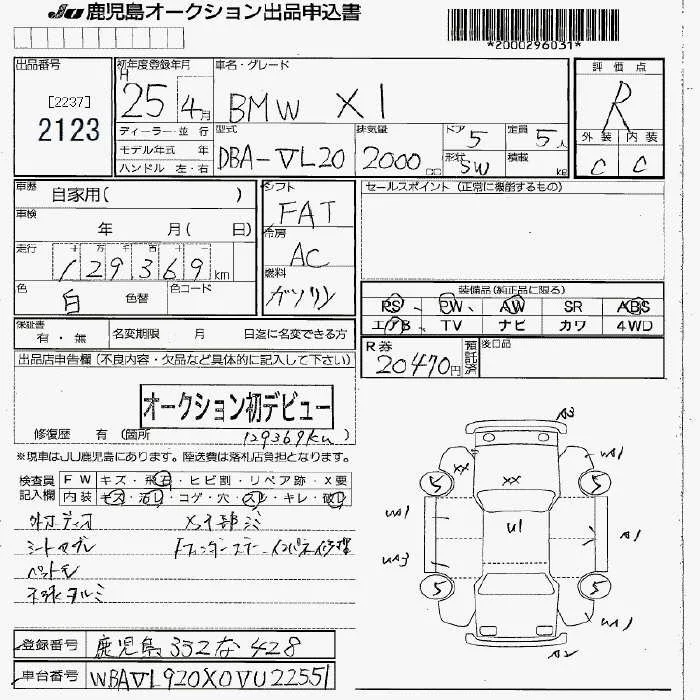 JU 鹿児島オークション出品申込書
*2000296031*
出品番号
[2237]
2123
初年度登録年月
H 25 4月
車名・グレード
BMW X1
評価点
R
外装 内装
C C
ディーラー 並行
モデル年式 年
ハンドル 左・右
型式
DBA-VL20
排気量
2000 cc
ドア 5
形状 SW
定員 5人
積載 kg
車歴
自家用( )
車検
年 月( 日)
走行
十 万 千
129369km
色
白 色替
色コード
シフト
FAT
冷房
AC
燃料
ガソリン
セールスポイント (正常に機能するもの)
装備品(純正品に限る)
PS PW AW SR ABS
エアB TV ナビ カワ 4WD
保証書
有・無
名変期限 月 日迄に名変できる方
R券
20470円
預託済
後日品
出品店申告欄(不良内容・欠品など具体的に記入して下さい)
オークション初デビュー
修復歴 有 (箇所 129369km)
※現車はJU鹿児島にあります。陸送費は落札店負担となります。
検査員記入欄
FW キズ・飛石・ヒビ割・リペア跡・X要
内装 キズ・汚レ・コゲ・穴・スレ・キレ・破レ
シートヨゴレ
ペットモ
A3
UA1
XX
XX
5 5
UA1
U1
A1
UA3
5 5
UA1
A2
登録番号 鹿児島 332 な 428
車台番号 WBAVL920X0VU22551